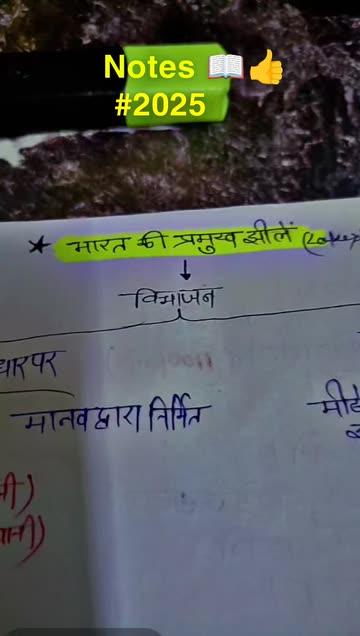 Notes 📖👍
#2025
★ भारत की प्रमुख झीलें (Lakes)
↓
विभाजन
धार पर
मानव द्वारा निर्मित
मीठे